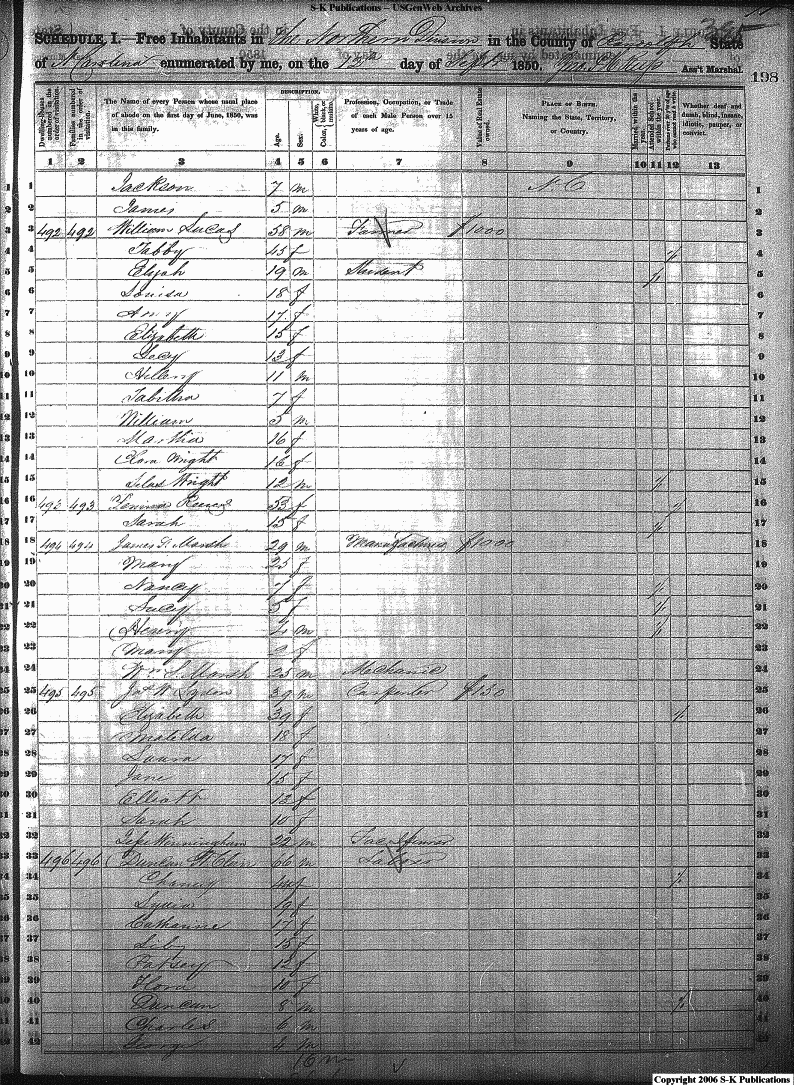 S-K Publications – USGenWeb Archives
SCHEDULE I.—Free Inhabitants in The Northern Division in the County of Randolph State
of N Carolina enumerated by me, on the 12 day of Sept 1850. Ass't Marshal.
198
Dwelling-houses numbered in the order of visitation.
Families numbered in the order of visitation.
The Name of every Person whose usual place of abode on the first day of June, 1850, was in this family.
DESCRIPTION.
Age.
Sex.
Color, White, black, or mulatto.
Profession, Occupation, or Trade of each Male Person over 15 years of age.
Value of Real Estate owned.
PLACE OF BIRTH. Naming the State, Territory, or Country.
Married within the year.
Attended School within the year.
Persons over 20 y'rs of age who cannot read & write.
Whether deaf and dumb, blind, insane, idiotic, pauper, or convict.
1 2 3 4 5 6 7 8 9 10 11 12 13
1 Jackson 7 m N. C 1
2 James 5 m 2
3 492 492 William Lucas 58 m Farmer $1000 3
4 Tabby 45 f / 4
5 Elijah 19 m Student / 5
6 Louisa 18 f 6
7 Amy 17 f 7
8 Elizabeth 15 f 8
9 13 f 9
10 11 m 10
11 Tabitha 7 f 11
12 William 5 m 12
13 Martha 16 f 13
14 Wright 16 f 14
15 Silas Wright 12 m / 15
16 493 493 53 f / 16
17 Sarah 15 f / 17
18 494 494 James F. Marsh 29 m Manufacturing $1000 18
19 Mary 25 f 19
20 Nancy 7 f / 20
21 Lucy 5 f / 21
22 Henry 4 m / 22
23 Mary 2 f 23
24 Wm S. Marsh 25 m Mechanic 24
25 495 495 39 m Carpenter $150 25
26 Elizabeth 39 f / 26
27 Matilda 18 f 27
28 Laura 17 f 28
29 Jane 15 f 29
30 Elliott 12 f 30
31 Sarah 10 f 31
32 Winningham 22 m 32
33 496 496 Duncan McClain 66 m 33
34 Chaney 44 f / 34
35 Lydia 19 f 35
36 Catharine 17 f 36
37 15 f 37
38 Patsey 12 f 38
39 Flora 10 f 39
40 Duncan 8 m / 40
41 Charles 6 m 41
42 George 4 m 42
16 m
Copyright 2006 S-K Publications